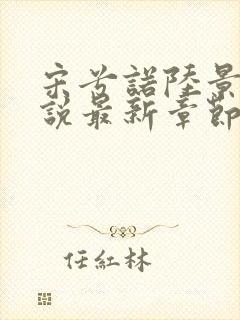 宋兮諾陸景
說最新章節
任紅林